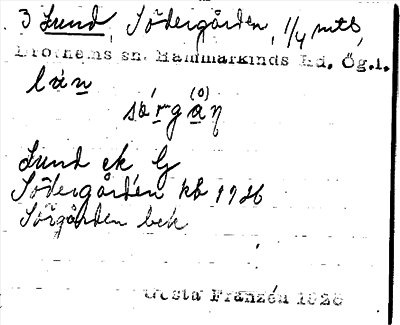 3 Lund, Södergården, 1/4 mtl,
Drothems sn. Hammarkinds hd. Ög.l.
(o)
Lund ek
Södergården kb 1926
Sörgården bek
Gösta Franzén 1926